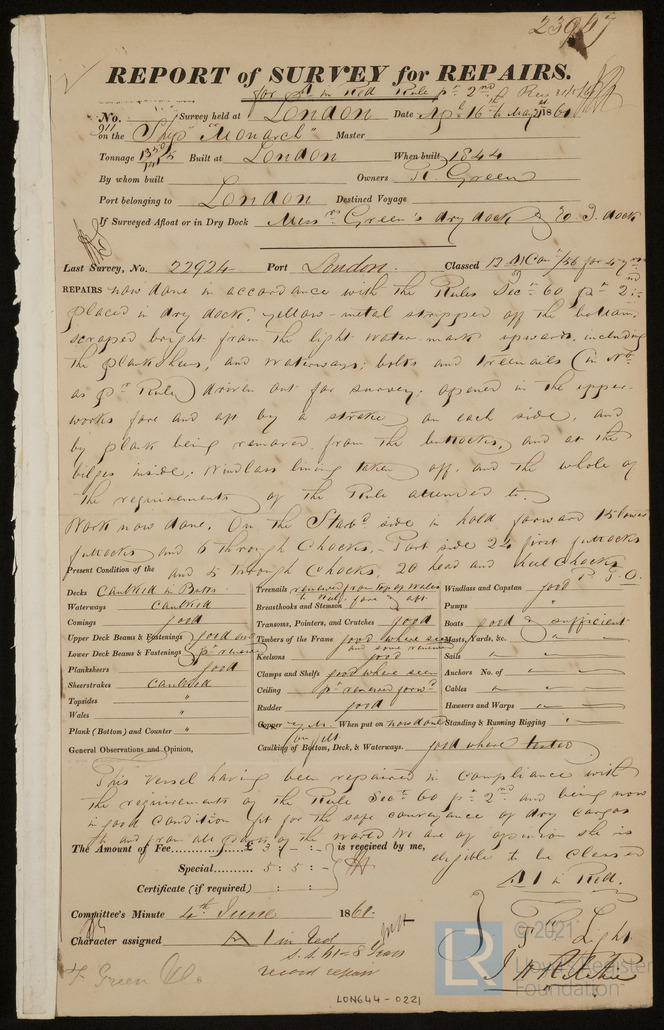 23947
REPORT of SURVEY for REPAIRS.
for A in Red Rule pt 2nd
No. 911 Survey held at London Date Apl 16th 6 May 21st 1861
on the Ship "Monarch" Master
Tonnage Built at London When built 1844
By whom built Owners R. Green
Port belonging to London Destined Voyage
If Surveyed Afloat or in Dry Dock Messrs Green's dry dock & E. I. dock
Last Survey, No. 22924 Port London. Classed 12 A1 for 4 yrs
REPAIRS now done in accordance with the Rules Secn 60 pt 2nd
placed in dry dock, yellow-metal stripped off the bottom,
scraped bright from the light water-mark upwards, including
the planksheers, and waterways; bolts and treenails (in No.
as pr Rule) driven out for survey. opened in the upper-
works fore and aft by a strake on each side, and
by plank being removed from the buttocks, and at the
bilges inside; Windlass lining taken off. and the whole of
the requirements of the Rule attended to.
Work now done. On the Starbd side in hold forward 15 lower
futtocks and 6 through Chocks,- Port side 22 first futtocks
and 5 through Chocks, 20 head and heel Chocks P.T.O.
Present Condition of the
Decks Caulked in Butts
Waterways Caulked
Comings good
Upper Deck Beams & Fastenings good and
Lower Deck Beams & Fastenings pt renewed
Planksheers good
Sheerstrakes Caulked
Topsides "
Wales "
Plank (Bottom) and Counter "
Treenails renewed from top of Wales
fore & aft
Breasthooks and Stemson
Transoms, Pointers, and Crutches good
Timbers of the Frame good where seen
and some renewed
Keelsons good
Clamps and Shelfs good where seen
Ceiling pt renewed forwd
Rudder good
Copper y.m. When put on now done
on felt
Caulking of Bottom, Deck, & Waterways. good where tested
Windlass and Capstan good
Pumps
Boats good & sufficient
Masts, Yards, &c. "
Sails "
Anchors No. of "
Cables "
Hawsers and Warps "
Standing & Running Rigging "
General Observations and Opinion,
This Vessel having been repaired in compliance with
the requirements of the Rule Secn 60 pt 2nd and being now
in good condition fit for the safe conveyance of dry cargos
to and from all parts of the world We are of opinion she is
eligible to be classed
A 1 in Red.
The Amount of Fee £ 3 : - : - is received by me,
Special 5 : 5 : -
Certificate (if required) : :
Committee's Minute 4th June 1861.
Character assigned A 1 in Red
8 Years
record repair
F. Green & Co.
Light
J. H. Ritchie
LON644-0221
© 2021
LR
Lloyd's Register
Foundation